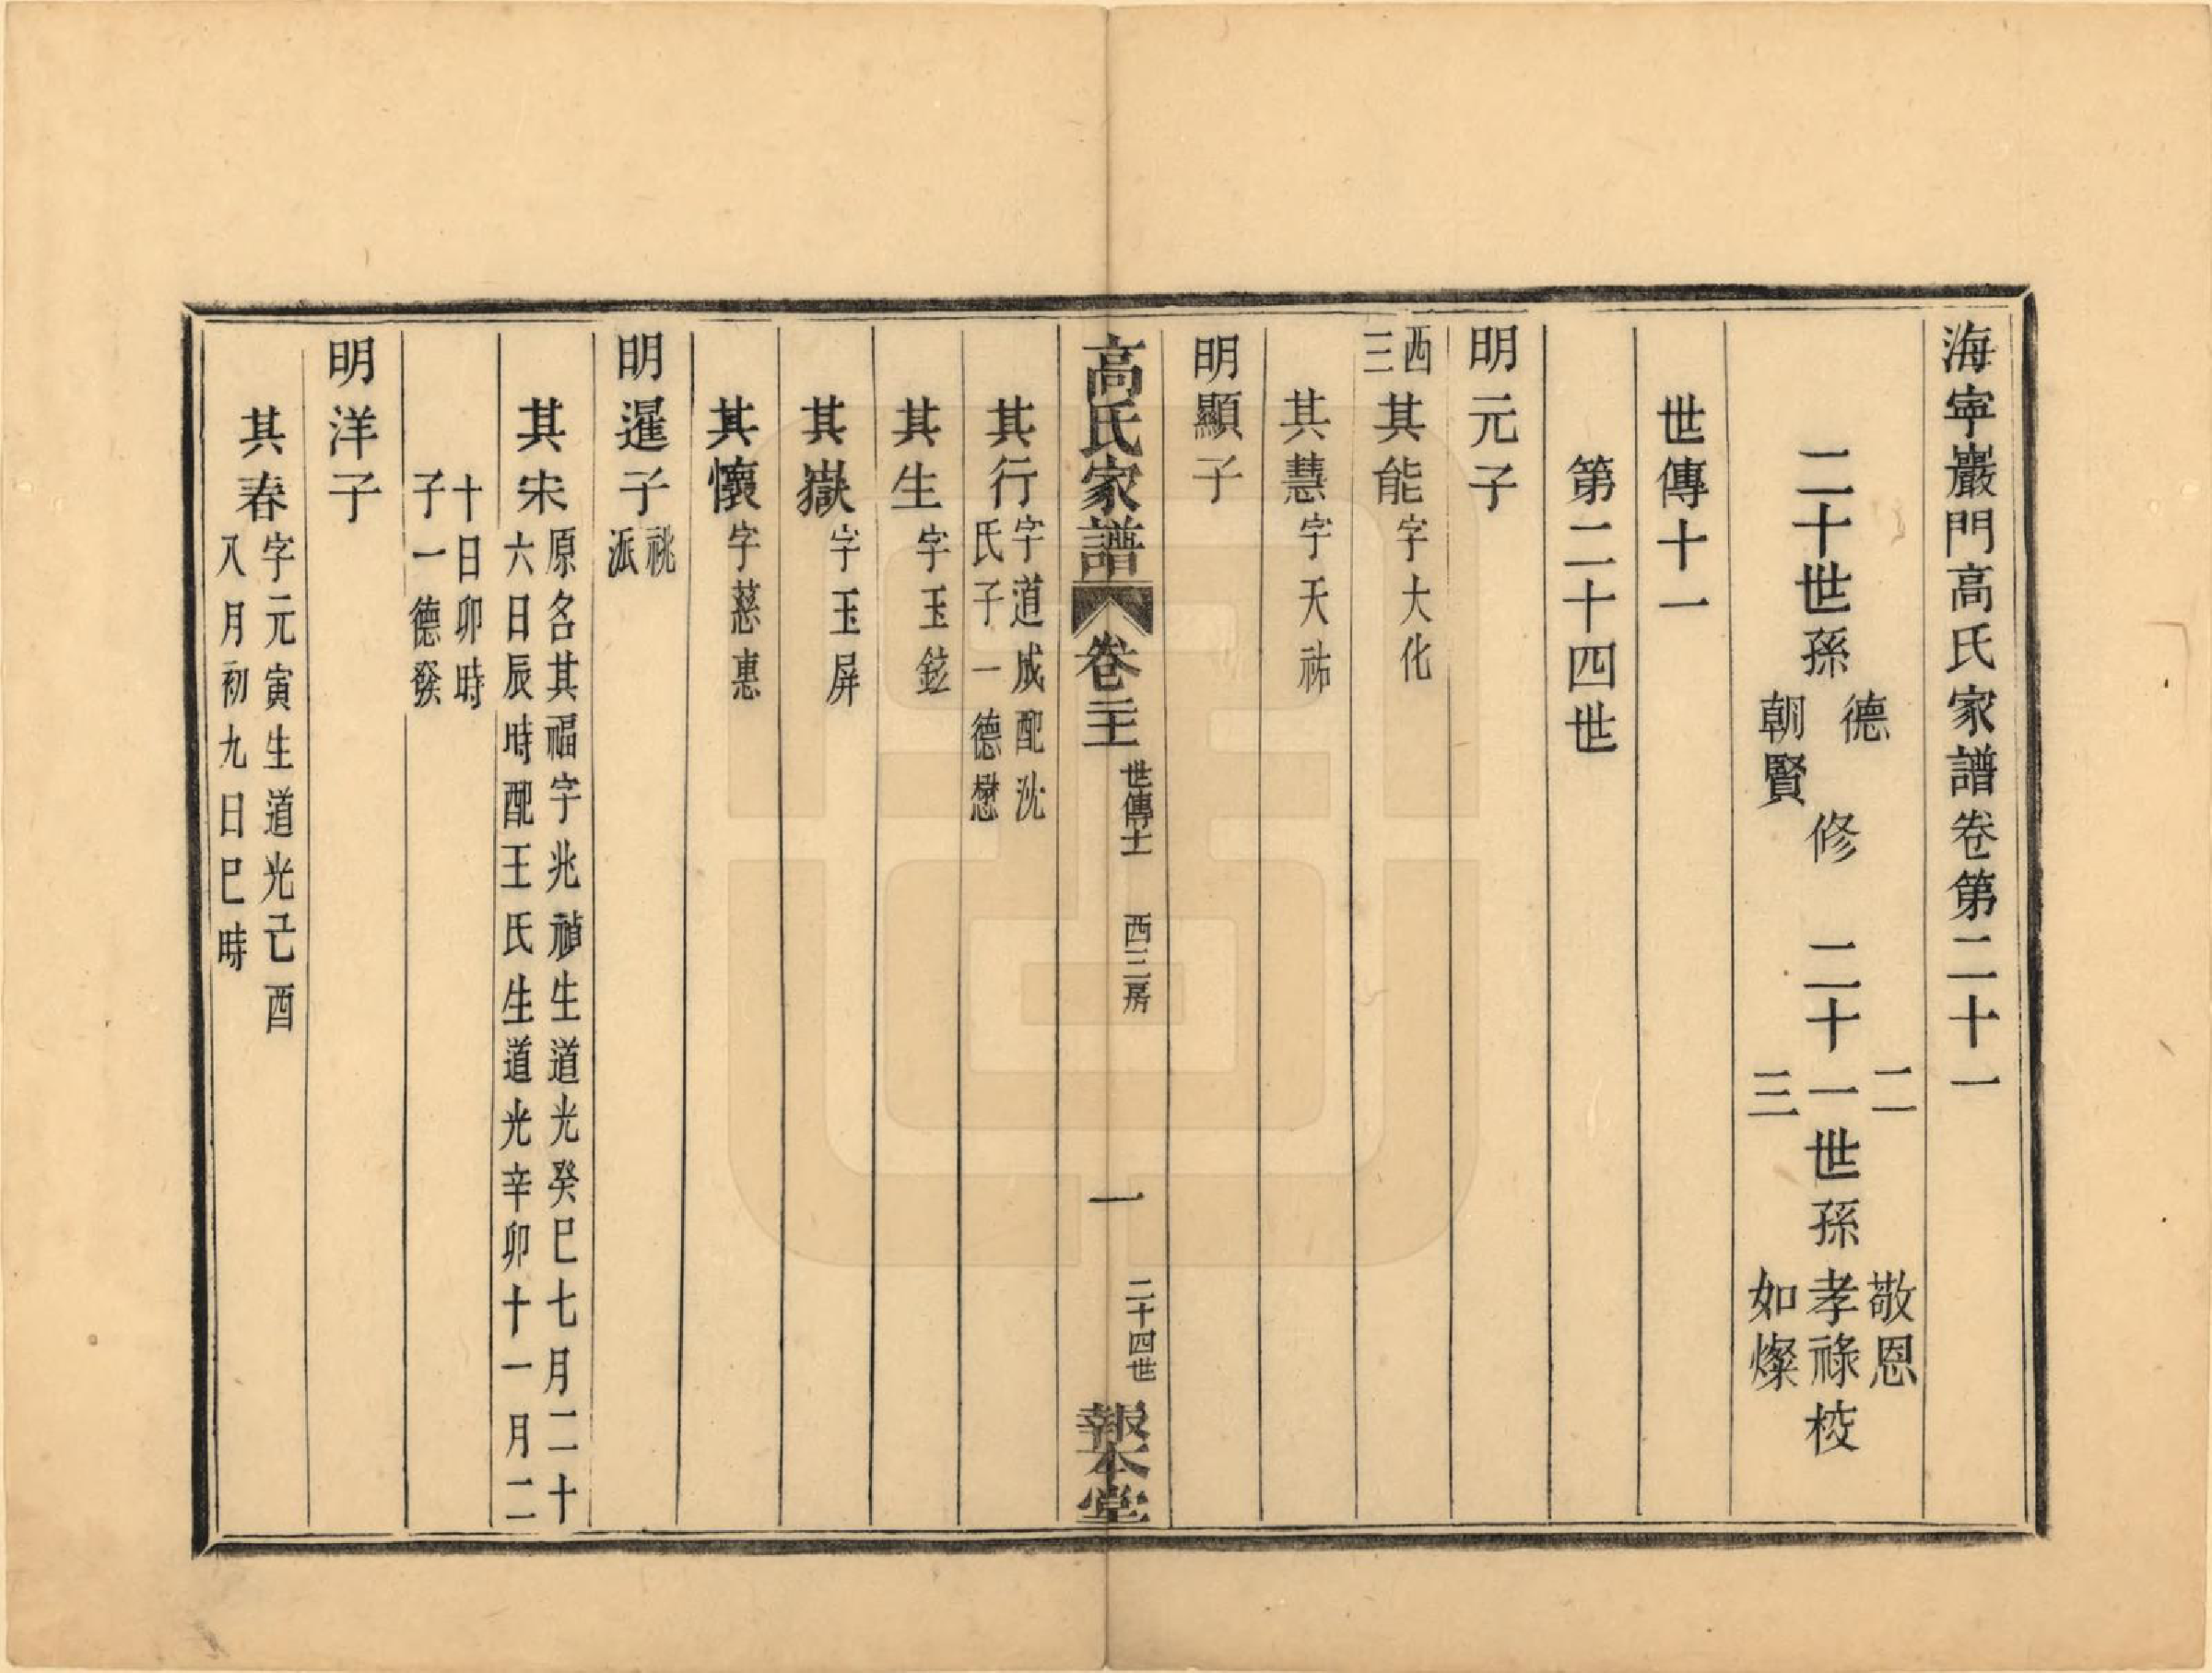 海寧巖門高氏家譜卷第二十一
二十世孫德朝賢修 二十一二三世孫敬恩孝祿如燦校
世傳十一
第二十四世
明元子
西三其能字大化
其慧字天祐
明顯子
高氏家譜 卷二十一 世傳十一 西三房 一 二十四世 報本堂
其行字道成配沈
氏子一德懋
其生字玉鉉
其嶽字玉屏
其懷字慈惠
明暹子祧派
其宋原名其福字兆禎生道光癸巳七月二十
六日辰時配王氏生道光辛卯十一月二
十日卯時
子一德發
明洋子
其春字元寅生道光己酉
八月初九日巳時